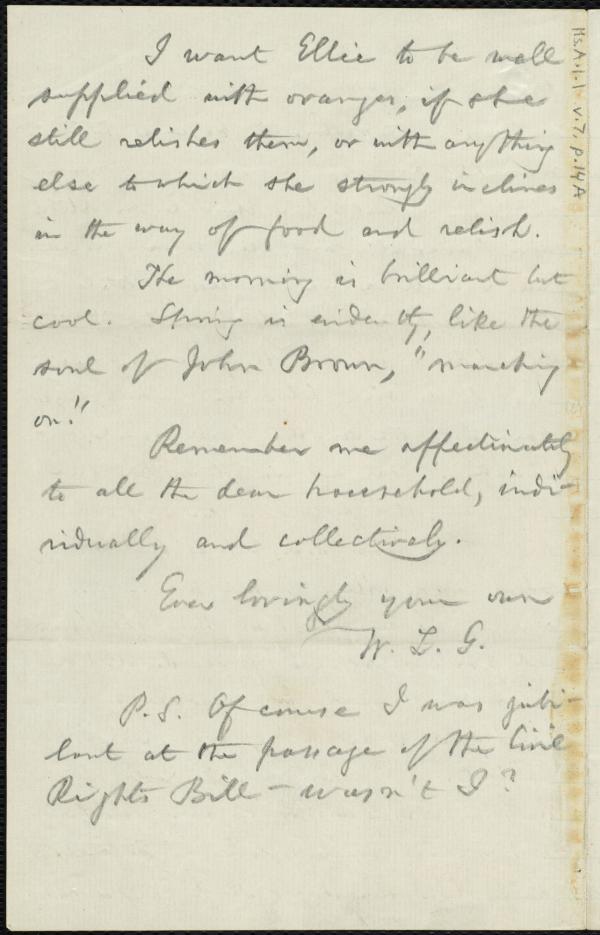 I want Ellie to be well
supplied with oranges, if she
still relishes them, or with anything
else to which she strongly inclines
in the way of food and relish.
The morning is brilliant but
cool. Spring is evidently, like the
soul of John Brown, "marching
on."
Remember me affectionately
to all the dear household, indi-
vidually and collectively.
Ever lovingly your own
W. L. G.
P.S. Of course I was jubi-
lant at the passage of the Civil
Rights Bill - wasn't I?
Ms.A.1.1 v.7, p.14A